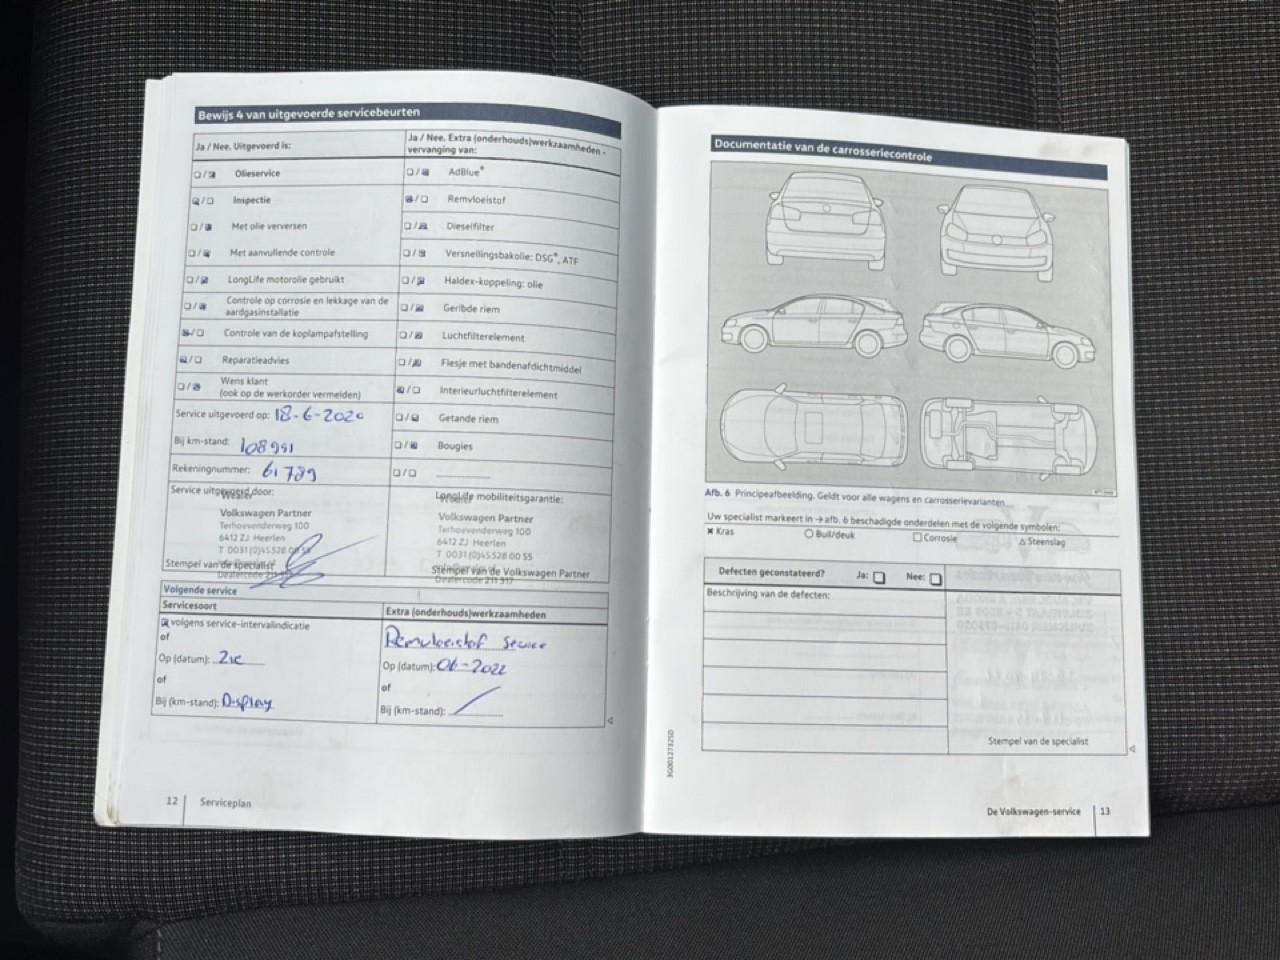 Bewijs 4 van uitgevoerde servicebeurten
Ja / Nee. Uitgevoerd is:
Olieservice
Inspectie
Met olie verversen
Met aanvullende controle
LongLife motorolie gebruikt
Controle op corrosie en lekkage van de
aardgasinstallatie
Controle van de koplampafstelling
Reparatieadvies
Wens klant
(ook op de werkorder vermelden)
Service uitgevoerd op: 18-6-2020
Bij km-stand: 108951
Rekeningnummer: 61789
Service uitgevoerd door:
Volkswagen Partner
Terhoevenderweg 100
6412 ZJ Heerlen
T 0031 (0)45 528 00 55
Stempel van de specialist
Dealercode 211 317
Ja / Nee. Extra (onderhouds)werkzaamheden -
vervanging van:
AdBlue®
Remvloeistof
Dieselfilter
Versnellingsbakolie: DSG®, ATF
Haldex-koppeling: olie
Geribde riem
Luchtfilterelement
Flesje met bandenafdichtmiddel
Interieurluchtfilterelement
Getande riem
Bougies
LongLife mobiliteitsgarantie:
Volkswagen Partner
Terhoevenderweg 100
6412 ZJ Heerlen
T 0031 (0)45 528 00 55
Stempel van de Volkswagen Partner
Dealercode 211 317
Volgende service
Servicesoort
volgens service-intervalindicatie
of
Op (datum): Zie
of
Bij (km-stand): Display
Extra (onderhouds)werkzaamheden
Remvloeistof Service
Op (datum): 06-2022
of
Bij (km-stand):
12
Serviceplan
Documentatie van de carrosseriecontrole
Afb. 6 Principeafbeelding. Geldt voor alle wagens en carrosserievarianten
Uw specialist markeert in → afb. 6 beschadigde onderdelen met de volgende symbolen:
Kras
Buil/deuk
Corrosie
Steenslag
Defecten geconstateerd? Ja: Nee:
Beschrijving van de defecten:
Stempel van de specialist
3G0012732SD
De Volkswagen-service
13